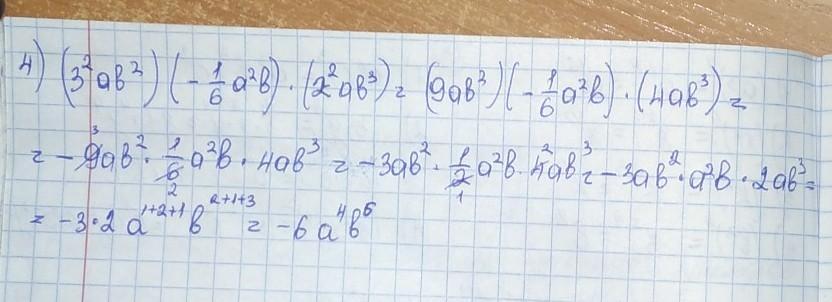 4) (3²ab²)(-1/6 a²b)·(2²ab³) = (9ab²)(-1/6 a²b)·(4ab³) =
= -9³ab²·1/6₂ a²b·4ab³ = -3ab²·1/2₁ a²b·4²ab³ = -3ab²·a²b·2ab³ =
= -3·2a¹⁺²⁺¹b²⁺¹⁺³ = -6a⁴b⁶